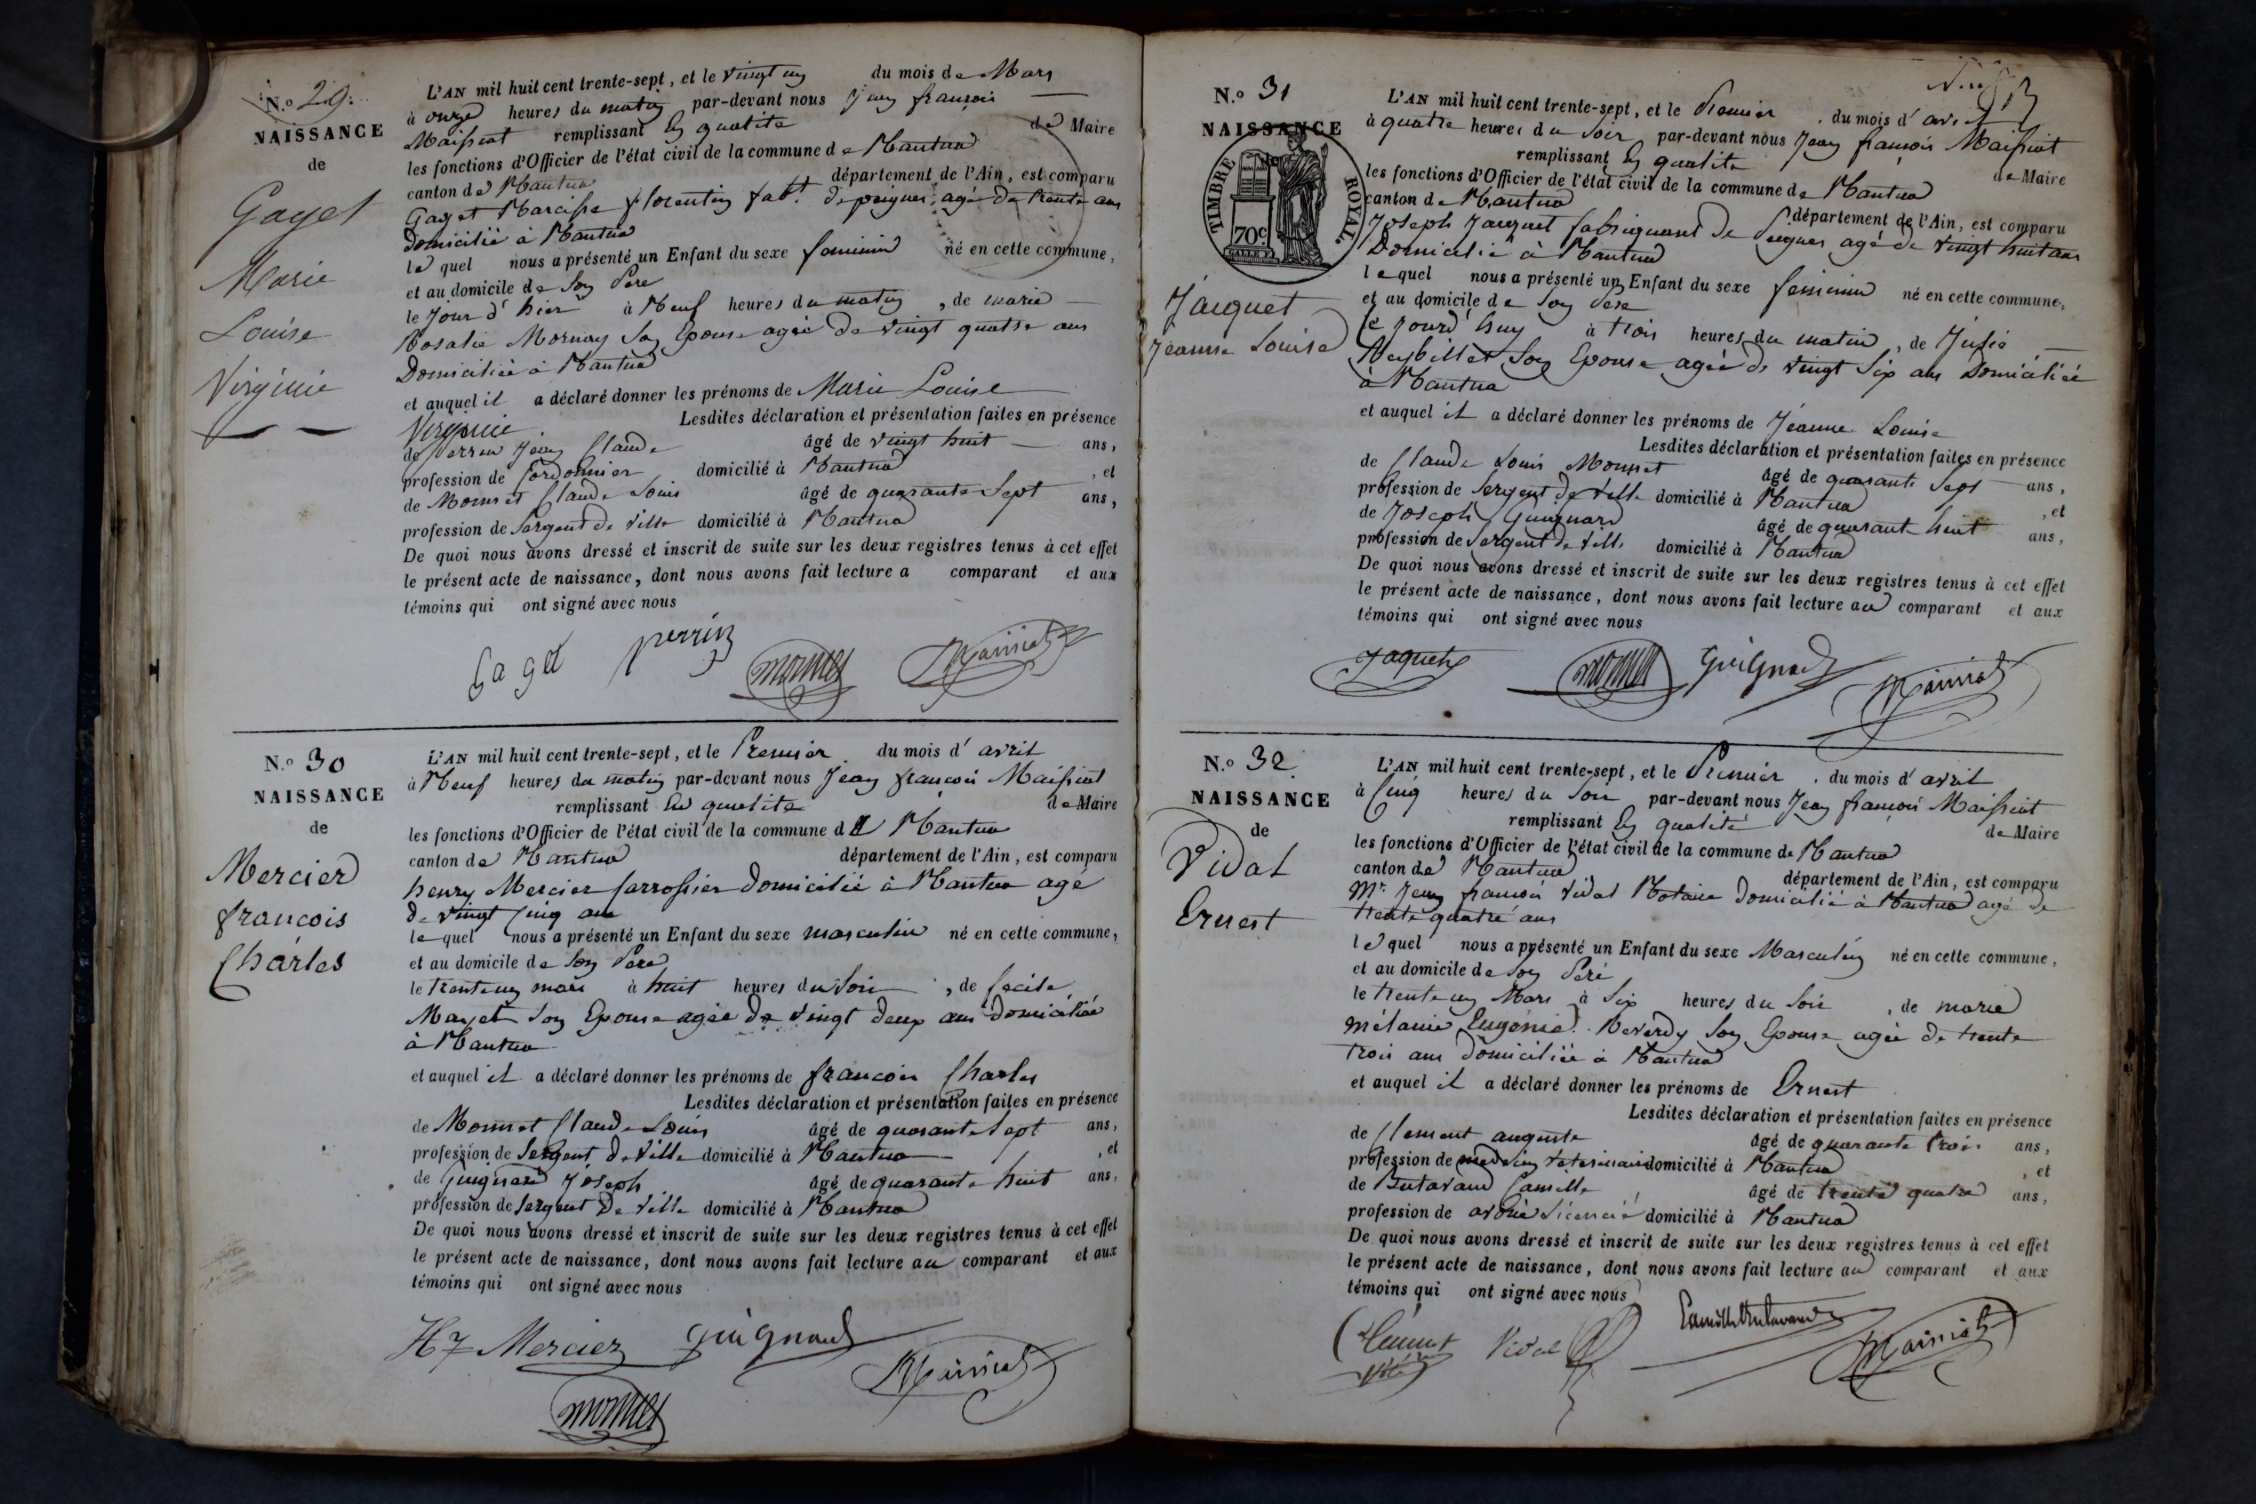 N.º 29.
NAISSANCE
de
Gayet
Marie
Louise
Virginie
L'AN mil huit cent trente-sept, et le vingt un du mois de Mars
à onze heures du matin par-devant nous Jean françois
Maissiat remplissant en qualité de Maire
les fonctions d'Officier de l'état civil de la commune de Nantua
canton de Nantua département de l'Ain, est comparu
Gayet Narcisse florentin fabt. de peignes, agé de trente ans
domicilié à Nantua
le quel nous a présenté un Enfant du sexe feminin né en cette commune,
et au domicile de son Pere
le jour d'hier à Neuf heures du matin, de marie
Rosalie Mornay son Epouse agée de vingt quatre ans
Domiciliée à Nantua
et auquel il a déclaré donner les prénoms de Marie Louise
Virginie. Lesdites déclaration et présentation faites en présence
de Perrin Jean Claude âgé de vingt huit ans,
profession de Cordonnier domicilié à Nantua, et
de Monnet Claude Louis âgé de quarante Sept ans,
profession de Sergent de Ville domicilié à Nantua
De quoi nous avons dressé et inscrit de suite sur les deux registres tenus à cet effet
le présent acte de naissance, dont nous avons fait lecture a comparant et aux
témoins qui ont signé avec nous
Gayet perrin monnet Maissiat
N.º 30
NAISSANCE
de
Mercier
françois
Charles
L'AN mil huit cent trente-sept, et le Premier du mois d'avril
à Neuf heures du matin par-devant nous Jean françois Maissiat
remplissant en qualité de Maire
les fonctions d'Officier de l'état civil de la commune de Nantua
canton de Nantua département de l'Ain, est comparu
henry Mercier Carrossier domicilié à Nantua agé
de vingt cinq ans
le quel nous a présenté un Enfant du sexe masculin né en cette commune,
et au domicile de son Pere
le trente un mars à huit heures du soir, de Cecile
Mayet son Epouse agée de vingt deux ans domiciliée
à Nantua
et auquel il a déclaré donner les prénoms de françois Charles
Lesdites déclaration et présentation faites en présence
de Monnet Claude Louis âgé de quarante sept ans,
profession de Sergent de Ville domicilié à Nantua, et
de Guignard Joseph âgé de quarante huit ans,
profession de Sergent de Ville domicilié à Nantua
De quoi nous avons dressé et inscrit de suite sur les deux registres tenus à cet effet
le présent acte de naissance, dont nous avons fait lecture au comparant et aux
témoins qui ont signé avec nous
Hy Mercier guignard Maissiat
monnet
N.º 31
NAISSANCE
TIMBRE ROYAL.
70c
Jacquet
Jeanne Louise
L'AN mil huit cent trente-sept, et le Premier du mois d'avril
à quatre heures du soir par-devant nous Jean françois Maissiat
remplissant en qualité de Maire
les fonctions d'Officier de l'état civil de la commune de Nantua
canton de Nantua département de l'Ain, est comparu
Joseph Jacquet fabriquant de Peignes agé de vingt huit ans
Domicilié à Nantua
le quel nous a présenté un Enfant du sexe feminin né en cette commune,
et au domicile de son Pere
ce jourd'huy à trois heures du matin, de Julie
Neybillet son Epouse agée de vingt six ans Domiciliée
à Nantua
et auquel il a déclaré donner les prénoms de Jeanne Louise
Lesdites déclaration et présentation faites en présence
de Claude Louis Monnet âgé de quarante sept ans,
profession de Sergent de Ville domicilié à Nantua, et
de Joseph Guignard âgé de quarante huit ans,
profession de Sergent de Ville domicilié à Nantua
De quoi nous avons dressé et inscrit de suite sur les deux registres tenus à cet effet
le présent acte de naissance, dont nous avons fait lecture au comparant et aux
témoins qui ont signé avec nous
Jaquet monnet Guignard Maissiat
N.º 32.
NAISSANCE
de
Vidal
Ernest
L'AN mil huit cent trente-sept, et le Premier du mois d'avril
à Cinq heures du soir par-devant nous Jean françois Maissiat
remplissant en qualité de Maire
les fonctions d'Officier de l'état civil de la commune de Nantua
canton de Nantua département de l'Ain, est comparu
Mr. Jean françois Vidal Notaire Domicilié à Nantua agé de
trente quatre ans
le quel nous a présenté un Enfant du sexe Masculin né en cette commune,
et au domicile de son Pere
le trente un Mars à Six heures du Soir, de marie
mélanie Eugénie Reverdy son Epouse agée de trente
trois ans domiciliée à Nantua
et auquel il a déclaré donner les prénoms de Ernest
Lesdites déclaration et présentation faites en présence
de Clement auguste âgé de quarante trois ans,
profession de medecin veterinaire domicilié à Nantua, et
de Butavand Camille âgé de trente quatre ans,
profession de avoué licencié domicilié à Nantua
De quoi nous avons dressé et inscrit de suite sur les deux registres tenus à cet effet
le présent acte de naissance, dont nous avons fait lecture au comparant et aux
témoins qui ont signé avec nous
Clément Vidal Camille Butavand Maissiat